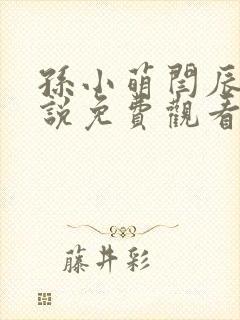 孫小萌閆辰
說免費觀看
藤井彩